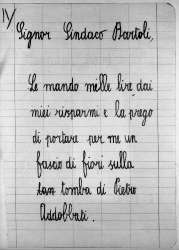 IV/
Signor Sindaco Bartoli,
Le mando mille lire dai
miei risparmi e la prego
di portare per me un
fascio di fiori sulla
tomba di Pietro
Addobbati.